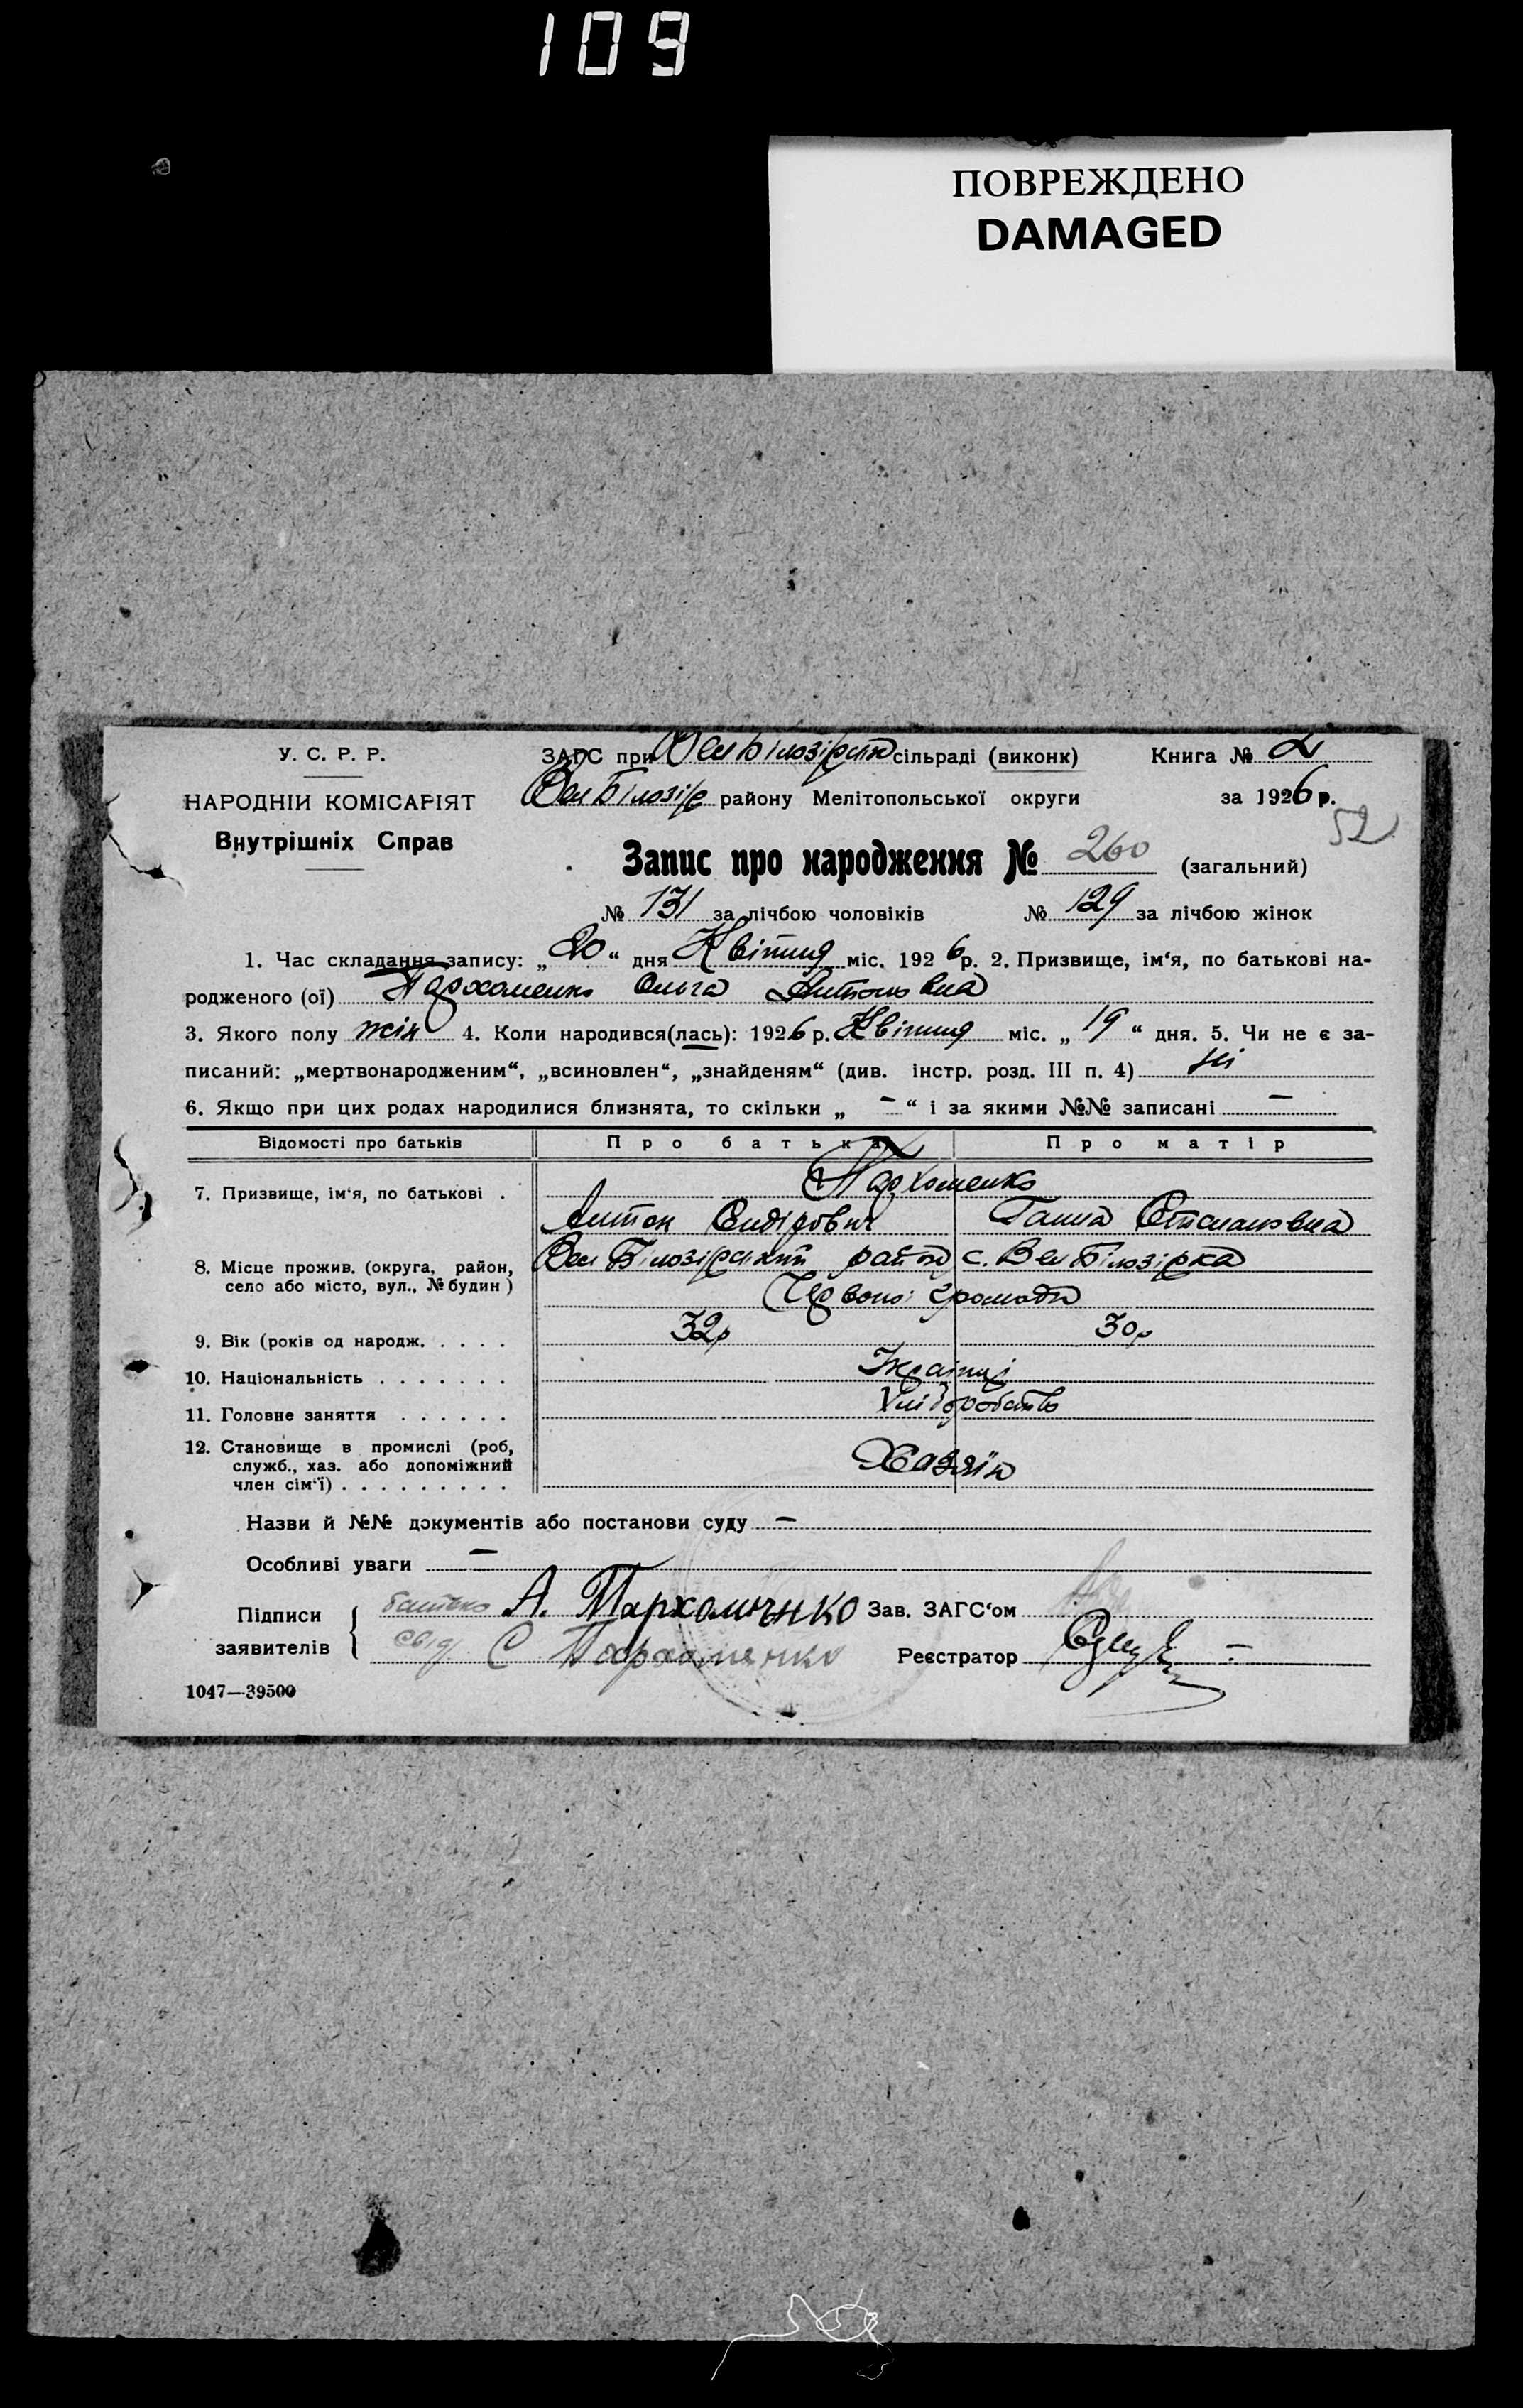 109
ПОВРЕЖДЕНО
DAMAGED
У. С. Р. Р.
НАРОДНІЙ КОМІСАРІЯТ
Внутрішніх Справ
ЗАГС при Вел Білозірськ сільраді (виконк) Книга № 2
Вел Білозір району Мелітопольської округи за 1926 р.
52
Запис про народження № 260 (загальний)
№ 131 за лічбою чоловіків № 129 за лічбою жінок
1. Час складання запису: „20“ дня Квітня міс. 1926 р. 2. Призвище, ім‘я, по батькові на-
родженого (ої) Пархоменко Ольга Антоновна
3. Якого полу жін 4. Коли народився(лась): 1926 р. Квітня міс. „19“ дня. 5. Чи не є за-
писаний: „мертвонародженим“, „всиновлен“, „знайденям“ (див. інстр. розд. III п. 4) ні
6. Якщо при цих родах народилися близнята, то скільки „ – “ і за якими №№ записані –
Відомості про батьків Про батька Про матір
7. Призвище, ім‘я, по батькові . Пархоменко
Антон Сидірович Ганна Степановна
8. Місце прожив. (округа, район, село або місто, вул., № будин) Вел Білозірський район с. Вел Білозірка
Червоної громади
9. Вік (років од народж. . . . . 32р 30р
10. Національність . . . . . . . Українці
11. Головне заняття . . . . . . Хліборобство
12. Становище в промислі (роб,
служб., хаз. або допоміжний
член сім‘ї) . . . . . . . . . Хазяїн
Назви й №№ документів або постанови суду –
Особливі уваги –
Підписи заявителів
батько А. Пархоменко Зав. ЗАГС‘ом
свід. С Пархоменко Реєстратор
1047—39500